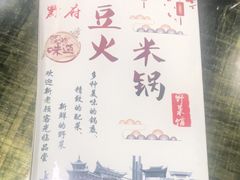 黔府
味道
豆米
火锅
野菜馆
多种美味的锅底
精致的配菜
新鲜的野菜
欢迎新老顾客光临品尝